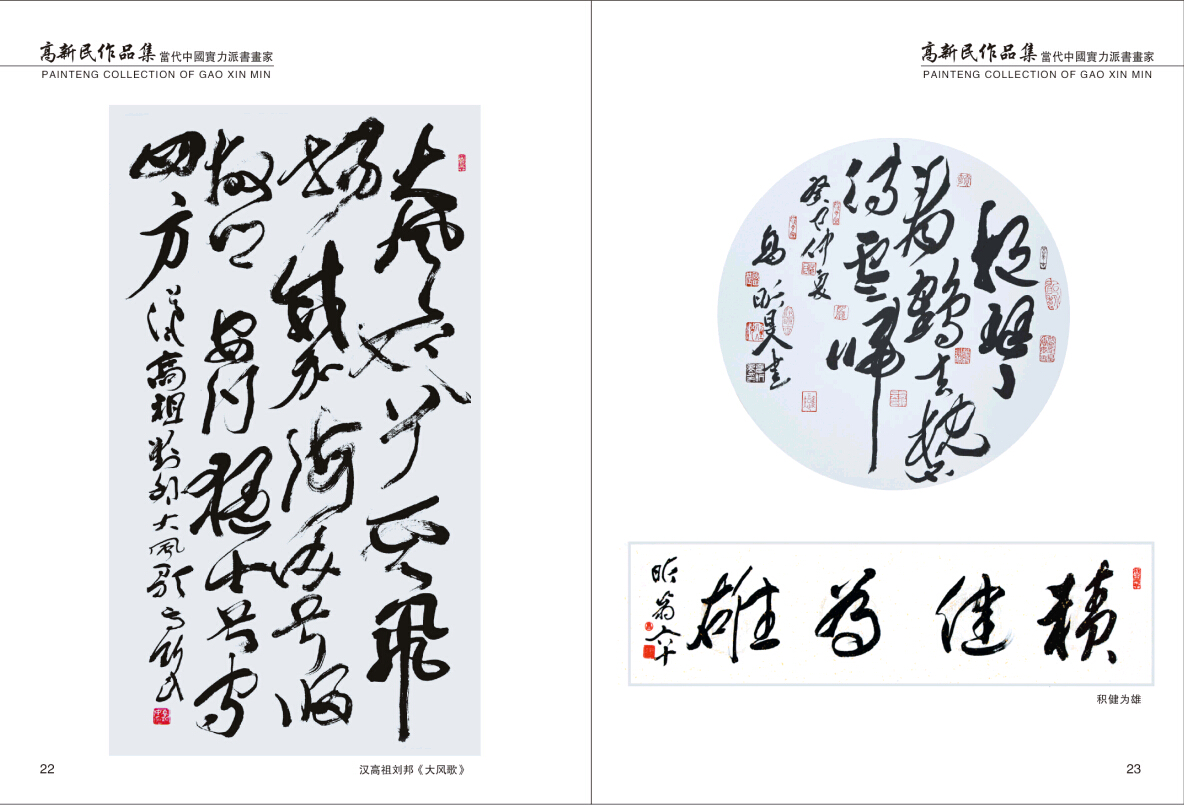 高新民作品集 當代中國實力派書畫家
PAINTENG COLLECTION OF GAO XIN MIN
大風起兮雲飛
揚威加海内兮歸
故鄉安得猛士兮守
四方
漢高祖劉邦大風歌高新民
22
汉高祖刘邦《大风歌》
高新民作品集 當代中國實力派書畫家
PAINTENG COLLECTION OF GAO XIN MIN
抱琴
看鶴去枕石
待雲歸
癸巳仲夏
積健為雄
昕翁六十
积健为雄
23